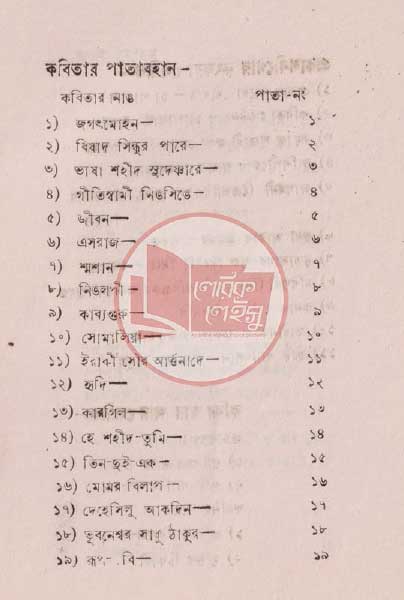 কবিতার পাতাবহান-
কবিতার নাঙ পাতা-নং
১) জগৎমোহন— ১
২) বিষাদ সিন্ধুর পারে— ২
৩) ভাষা শহীদ সুদেষ্ণারে— ৩
৪) গীতিস্বামী নিঙসিঙে— ৪
৫) জীবন— ৫
৬) এসরাজ— ৬
৭) শ্মশান— ৭
৮) নিঙলপী— ৮
৯) কাব্যগুরু— ৯
১০) সোমালিয়া— ১০
১১) ইরাকী মোর আর্ত্তনাদে— ১১
১২) হৃদি— ১২
১৩) কারগিল— ১৩
১৪) হে শহীদ তুমি— ১৪
১৫) তিন-দুই-এক— ১৫
১৬) মোমর বিলাপ— ১৬
১৭) দেহেসিলু আকদিন— ১৭
১৮) ভূবনেশ্বর সাধু ঠাকুর— ১৮
১৯) ১৯
পৌরিক
পেইসু